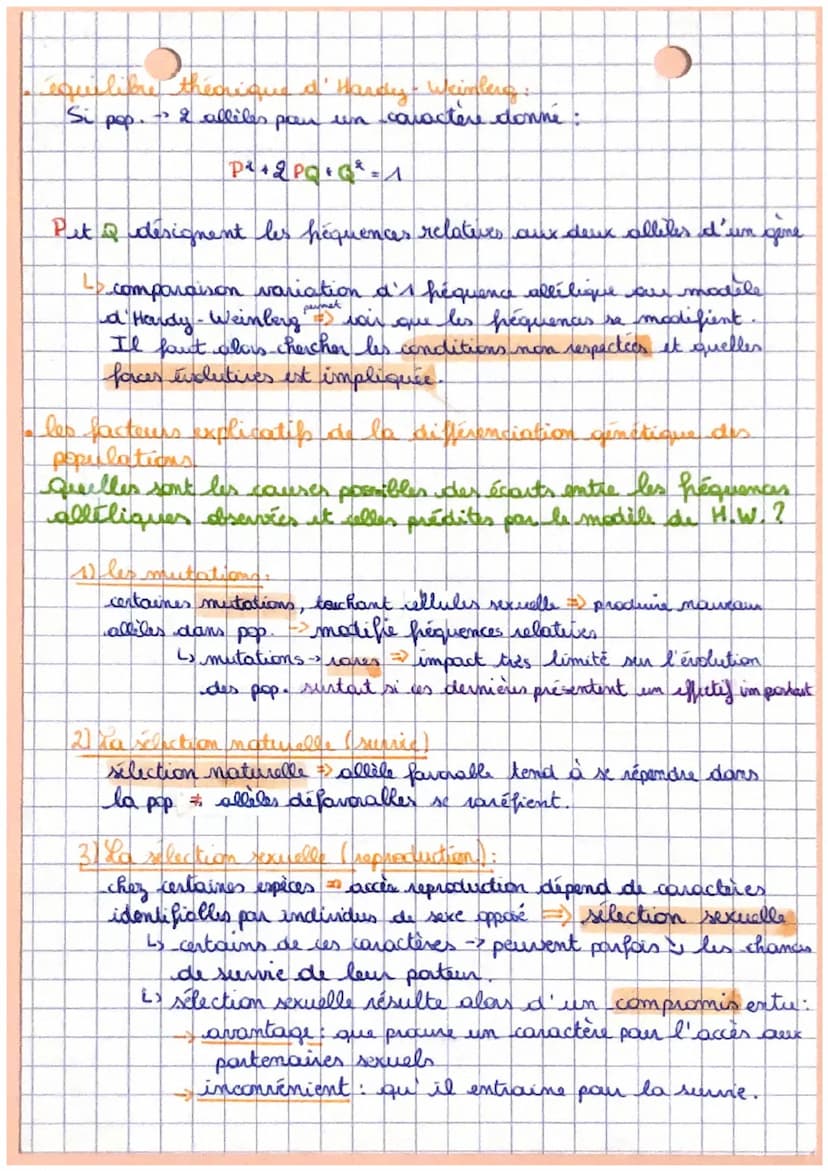 . équilibre théorique d'Hardy-Weinberg :
Si pop. -> 2 allèles pour un caractère donné :
P² + 2 PQ + Q² = 1
P et Q désignent les fréquences relatives aux deux allèles d'un gène
↳ comparaison variation d'1 fréquence allélique au modèle
d'Hardy-Weinberg permet => voir que les fréquences se modifient.
Il faut alors chercher les conditions non respectées et quelles
forces évolutives est impliquée.
. les facteurs explicatifs de la différenciation génétique des
populations.
Quelles sont les causes possibles des écarts entre les fréquences
alléliques observées et celles prédites par le modèle de H.W. ?
1) les mutations :
certaines mutations, touchant cellules sexuelle => produire nouveaux
allèles dans pop. -> modifie fréquences relatives
↳ mutations -> rares => impact très limité sur l'évolution
des pop. surtout si ces dernières présentent un effectif important
2) La sélection naturelle (survie)
sélection naturelle => allèle favorable tend à se répendre dans
la pop ≠ allèles défavorables se raréfient.
3) La sélection sexuelle (reproduction) :
chez certaines espèces => accès reproduction dépend de caractères
identifiables par individus de sexe opposé => sélection sexuelle
↳ certains de ces caractères -> peuvent parfois ↘ les chances
de survie de leur porteur.
↳ sélection sexuelle résulte alors d'un compromis entre :
-> avantage : que procure un caractère pour l'accès aux
partenaires sexuels
-> inconvénient : qu'il entraine pour la survie.